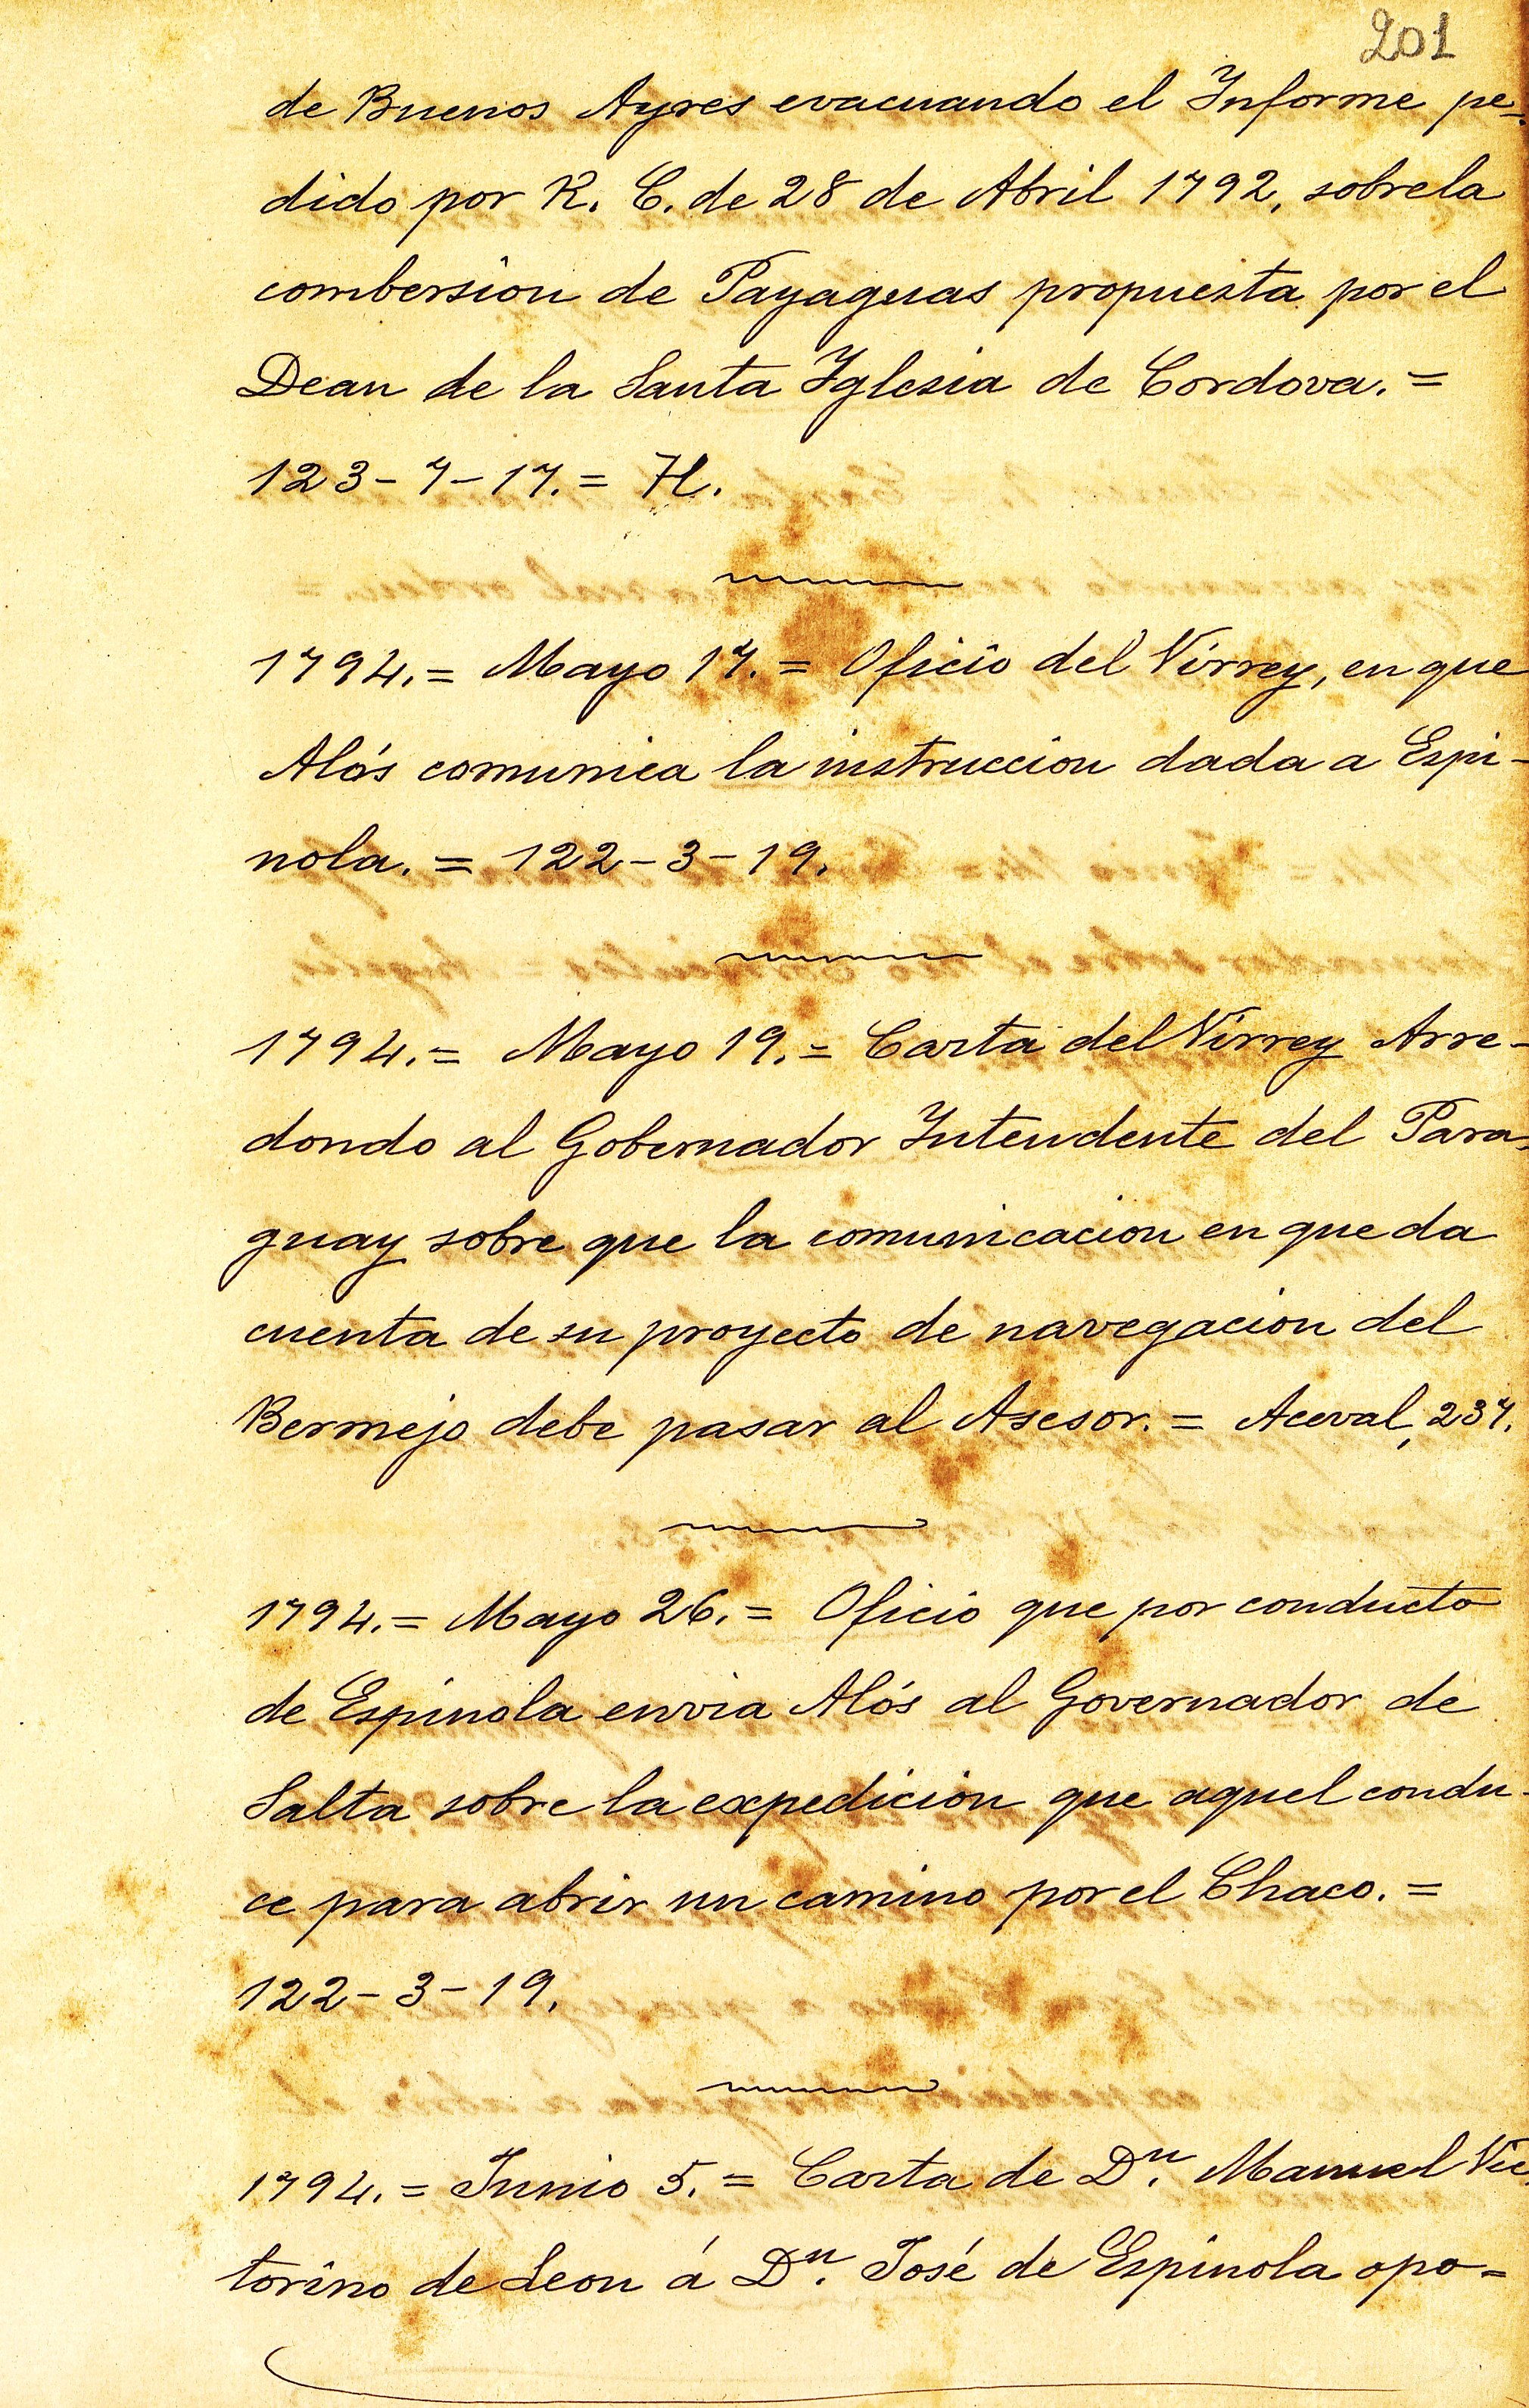 201
de Buenos Ayres evacuando el Informe pe-
dido por R. C. de 28 de Abril 1792, sobre la
combersion de Payaguas propuesta por el
Dean de la Santa Iglesia de Cordova. =
123-7-17. = H.
1794. = Mayo 17. = Oficio del Virrey, en que
Alós comunica la instruccion dada a Espi-
nola. = 122-3-19.
1794. = Mayo 19. = Carta del Virrey Arre-
dondo al Gobernador Intendente del Para-
guay sobre que la comunicacion en que da
cuenta de su proyecto de navegacion del
Bermejo debe pasar al Asesor. = Aceval, 237.
1794. = Mayo 26. = Oficio que por conducto
de Espinola envia Alós al Governador de
Salta sobre la expedición que aquel condu-
ce para abrir un camino por el Chaco. =
122-3-19.
1794. = Junio 5. = Carta de Dn. Manuel Vic
torino de Leon á Dn. José de Espinola opo-